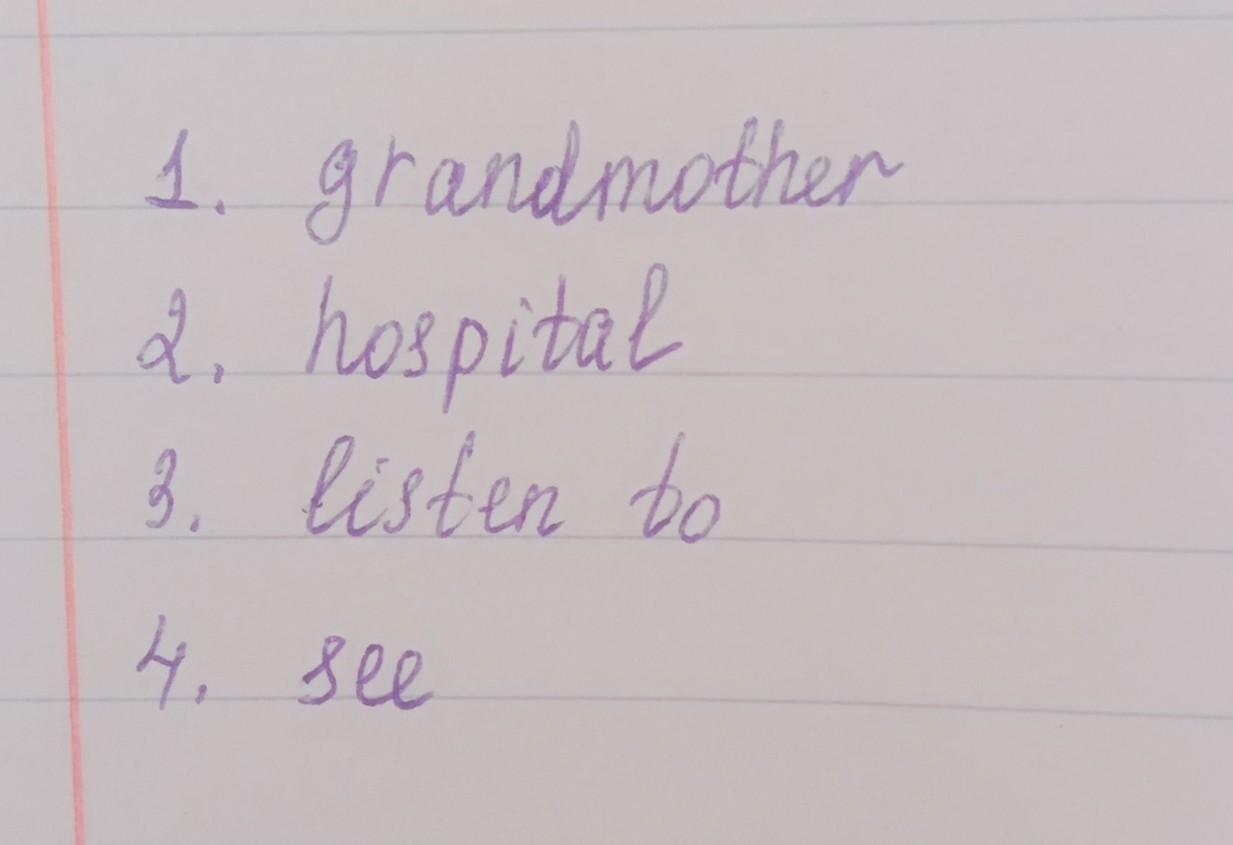 1. grandmother
2. hospital
3. listen to
4. see